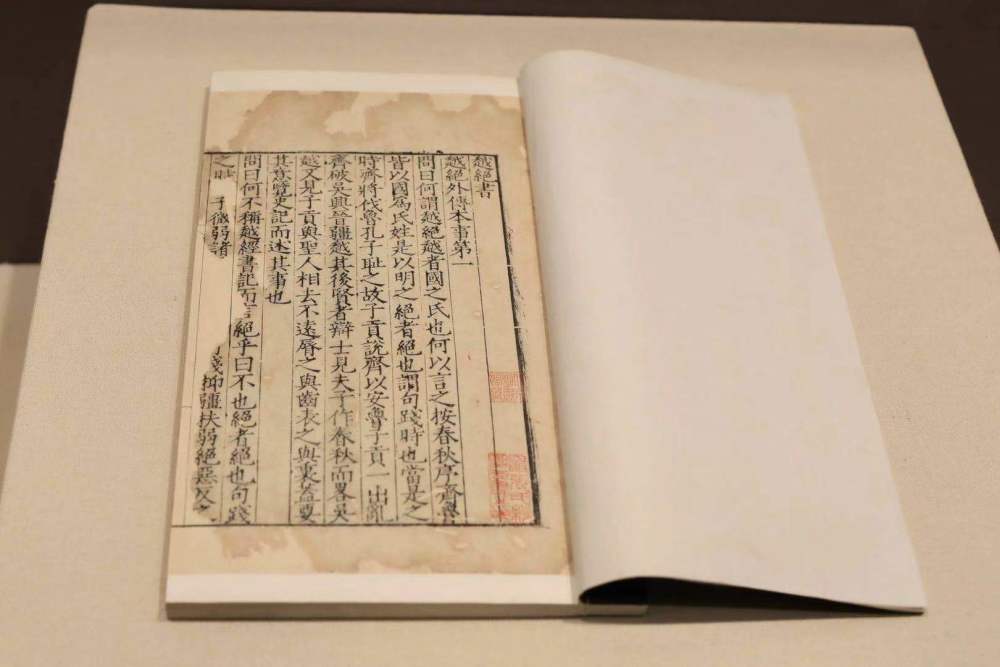 越絕書
越絕外傳本事第一
問曰何謂越絕越者國之氏也何以言之按春秋序齊魯
皆以國爲氏姓是以明之絕者絕也謂句踐時也當是之
時齊將伐魯孔子耻之故子貢說齊以安魯子貢一出亂
齊破吳興晉彊越其後賢者辯士見夫子作春秋而畧吳
越又見子貢與聖人相去不遠脣之與齒表之與裏蓋要
其意覽史記而述其事也
問曰何不稱越經書記而言絕乎曰不也絕者絕也句踐
之時 子微弱諸 踐抑彊扶弱絕惡反之